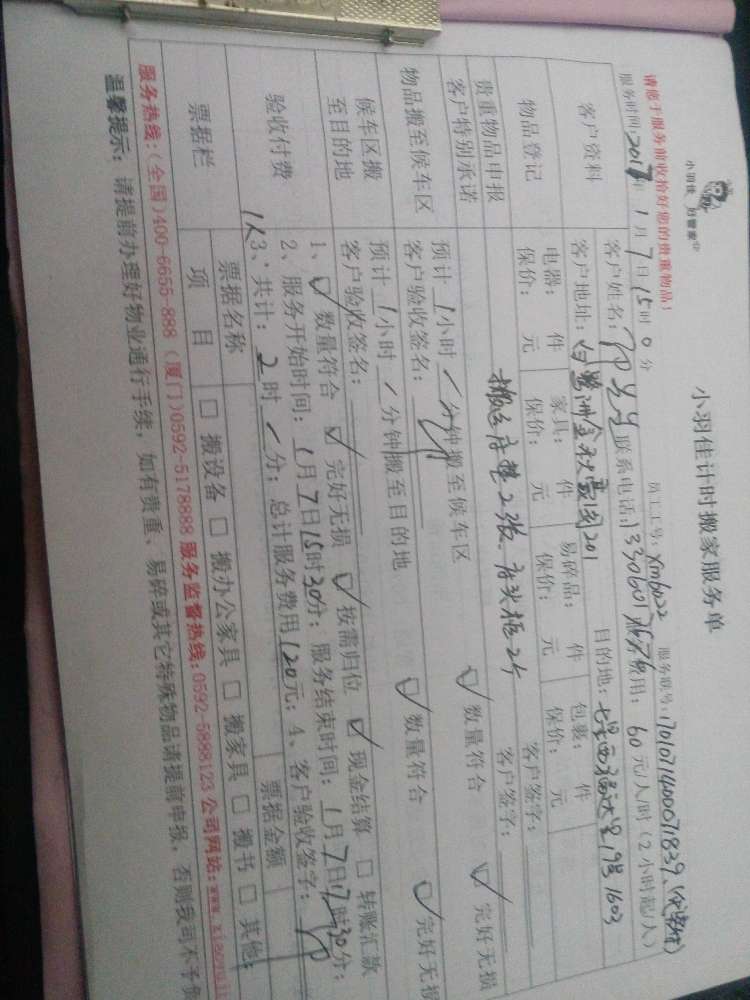 小羽佳计时搬家服务单
小羽佳 好管家
员工工号: xmb022 服务联号: 17010714000071839、
请顾于服务前收拾好您的贵重物品!
服务时间: 2017年 1月 7日 15时 0分
客户资料
客户姓名: 联系电话: 费用: 60 元/人/时 (2小时起/人)
客户地址: 201 目的地: 19号1603
物品登记
电器: 件 家具: 件 易碎品: 件 包裹: 件
保价: 元 保价: 元 保价: 元 保价: 元
贵重物品申报 客户签字:
客户特别承诺 搬运床垫2张、床头柜2个 客户签字:
物品搬至候车区
预计 1 小时 / 分钟搬至候车区 ☑ 数量符合 ☑ 完好无损
客户验收签名:
候车区搬至目的地
预计 1 小时 / 分钟搬至目的地 ☑ 数量符合 ☑ 完好无损
客户验收签名:
验收付费
1、☑ 数量符合 ☑ 完好无损 ☑ 按需归位 ☑ 现金结算 □ 转账汇款
2、服务开始时间: 1月7日15时30分; 服务结束时间: 1月7日17时30分;
1人 3、共计: 2 时 / 分; 总计服务费用 120元; 4、客户验收签字:
票据栏
票据名称 票据金额
项 目 □ 搬设备 □ 搬办公家具 □ 搬家具 □ 搬书 □ 其他:
服务热线:(全国)400-6655-888 (厦门)0592-5178888 服务监督热线:0592-5888123 公司网站:www.xiaoyuji
温馨提示: 请提前办理好物业通行手续, 如有贵重、易碎或其它特殊物品请提前申报, 否则我司不予